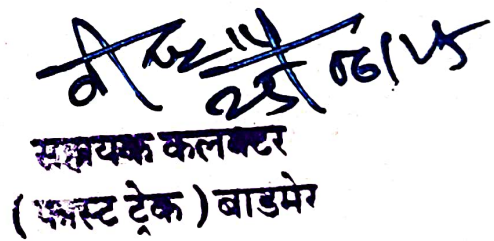 25/06/25
सहायक कलक्टर
(फास्ट ट्रेक) बाडमेर